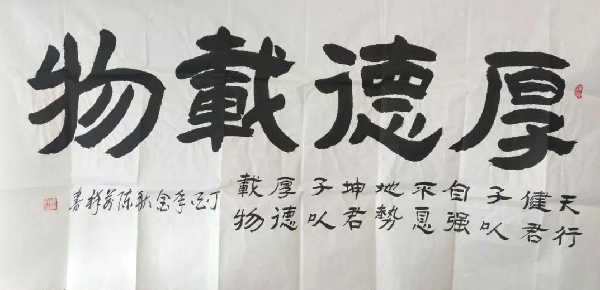 厚德載物
天行
健君
子以
自强
不息
地勢
坤君
子以
厚德
載物
丁酉年金秋陈祥書